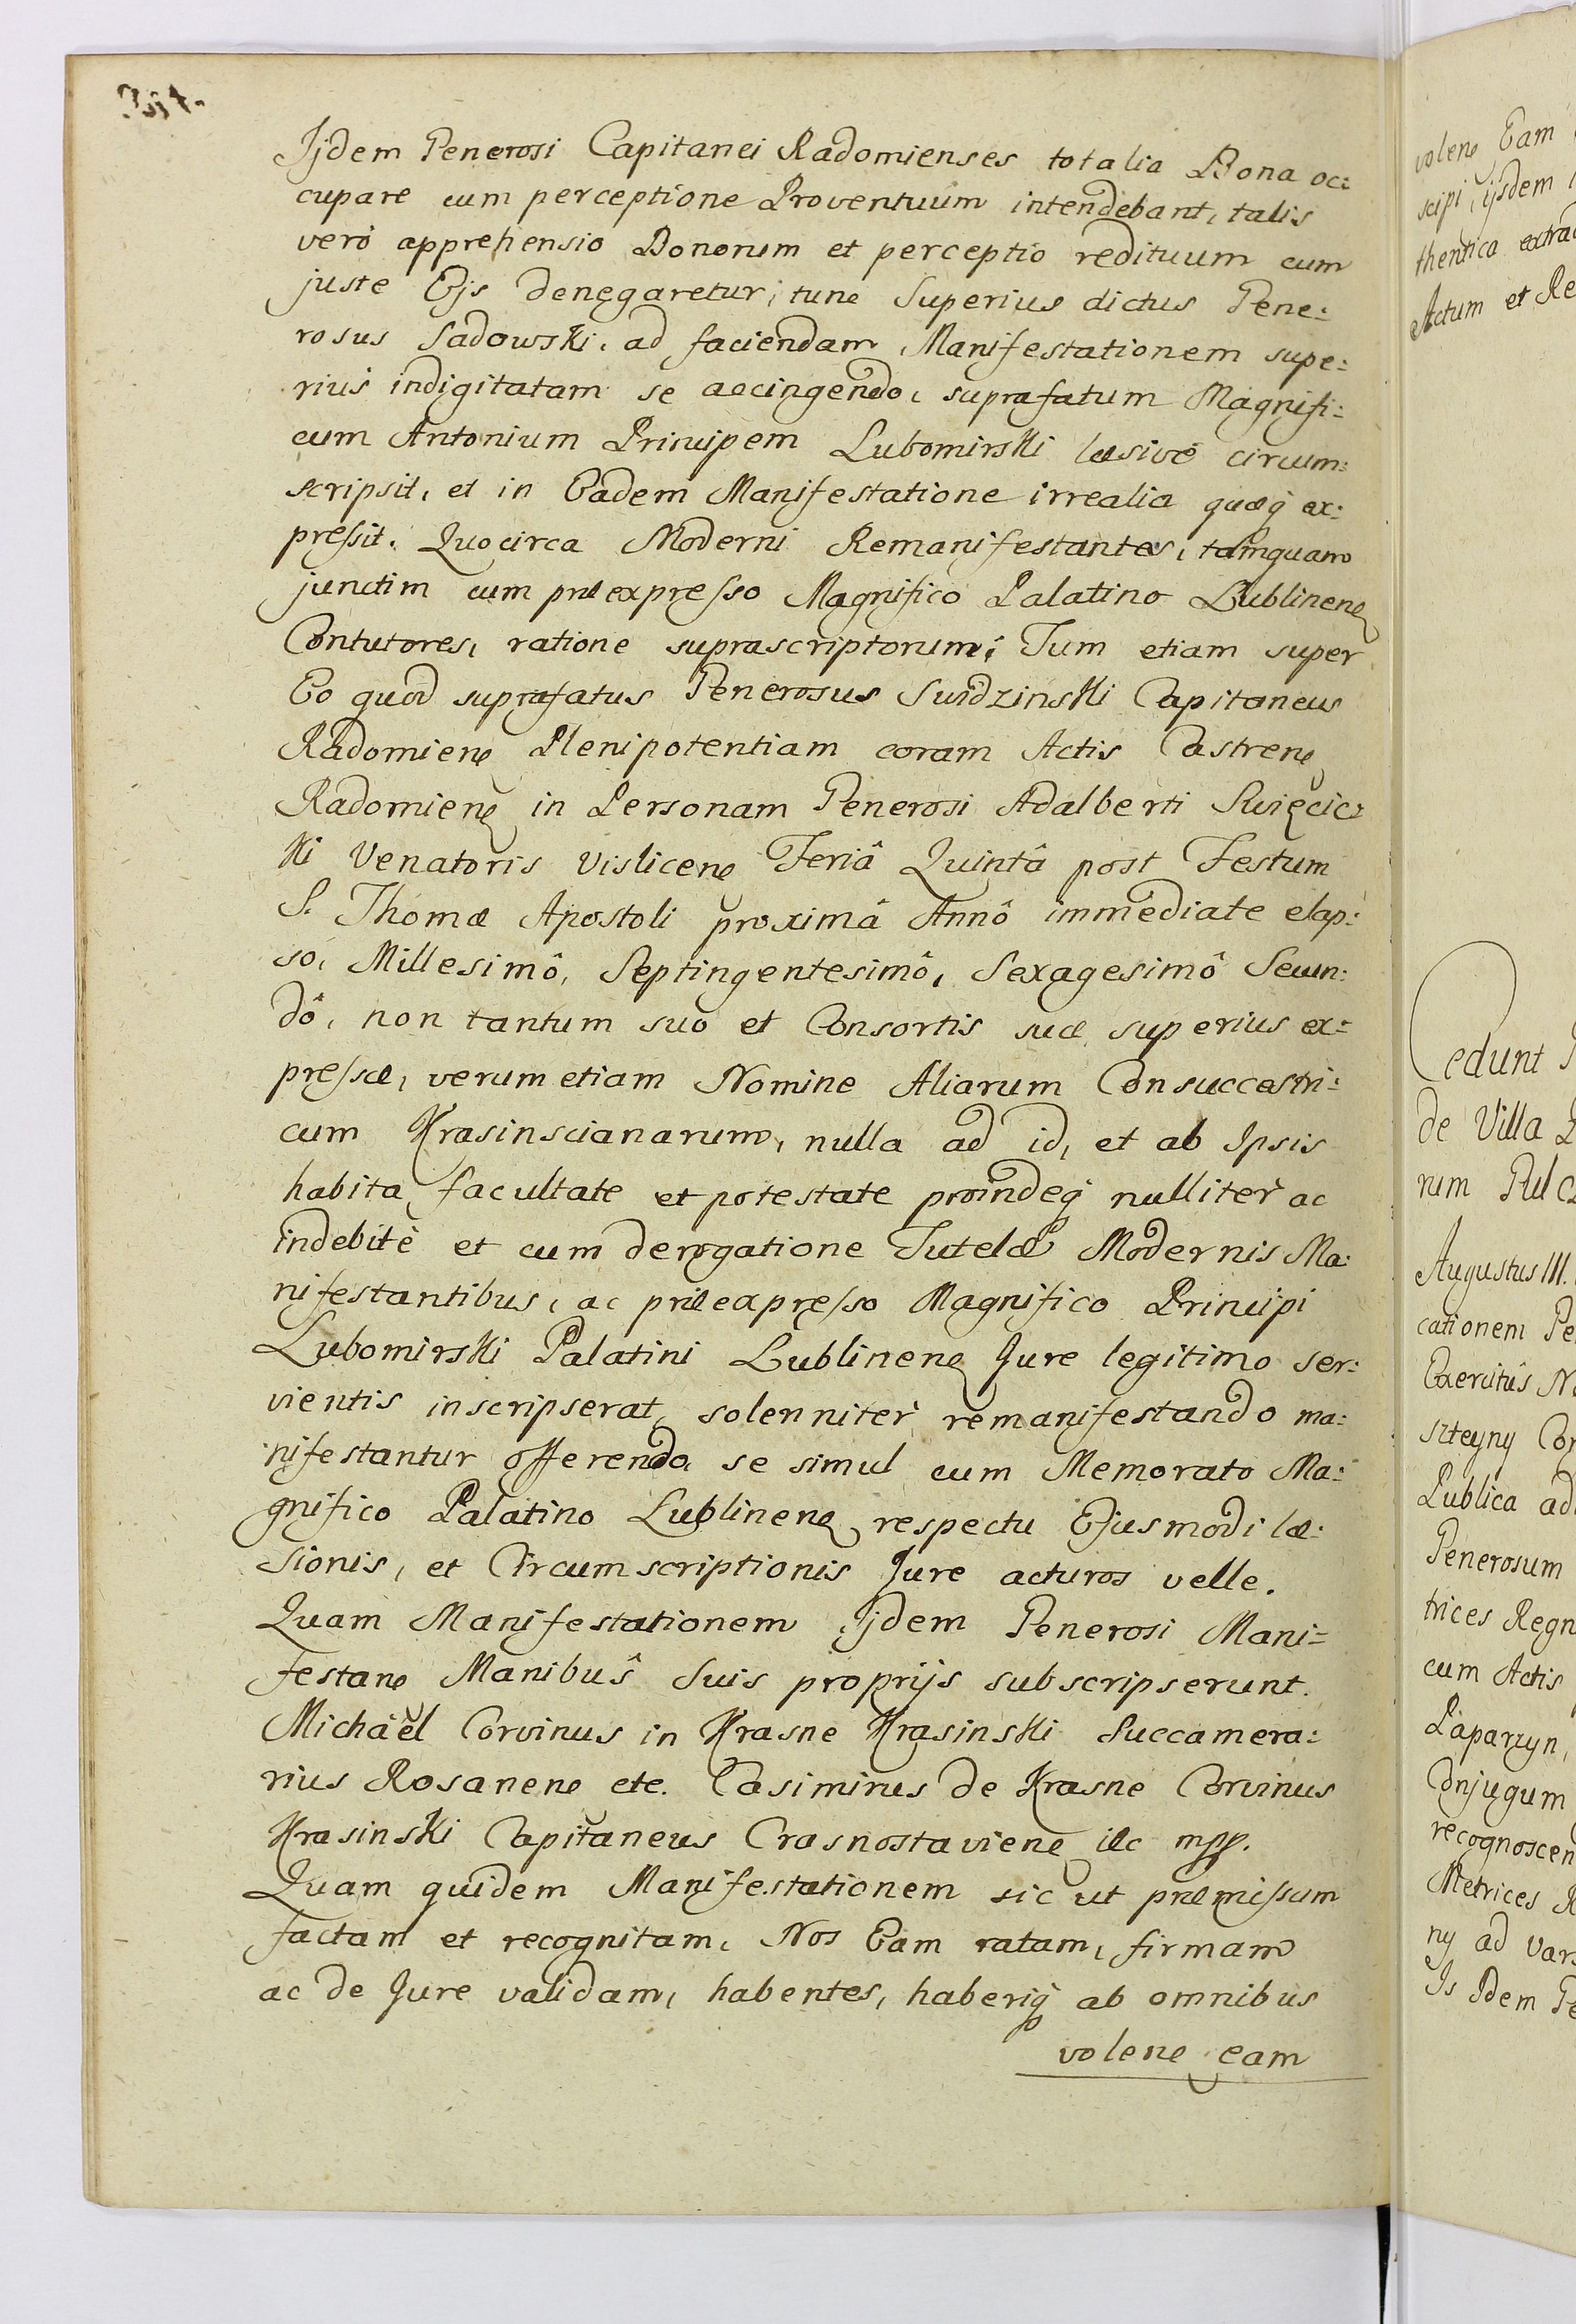 Ijdem Generosi Capitanei Radomienses totalia Bona oc:
cupare cum perceptione Proventuum intendebant, talis
verò apprehensio Bonorum et perceptio redituum cum
juste Ejs denegaretur, tunc Superius dictus Gene:
rosus Sadowski, ad faciendam Manifestationem supe:
rius indigitatam se accingendo, suprafatum Magnifi:
cum Antonium Principem Lubomirski læsivè circum:
scripsit, et in Eadem Manifestatione irrealia quæq ex:
preſsit. Quocirca Moderni Remanifestantes, tamquam
junctim cum præexpreſso Magnifico Palatino Lublinen
Contutores, ratione suprascriptorum; Tum etiam super
Eo quod suprafatus Generosus Swidzinski Capitaneus
Radomien Plenipotentiam coram Actis Castren
Radomien in Personam Generosi Adalberti Swięcic:
ki Venatoris Vislicen Feriâ Quintâ post Festum
S. Thomæ Apostoli proximâ Annô immediate elap:
so, Millesimô, Septingentesimô, Sexagesimô Secun:
dô, non tantum suo et Consortis suæ superius ex:
preſsæ, verum etiam Nomine Aliarum Consuccestri:
cum Krasinscianarum, nulla ad id, et ab Ipsis
habita facultate et potestate proindeq nulliter ac
indebitè et cum derogatione Tutelæ Modernis Ma:
nifestantibus, ac præexpreſso Magnifico Principi
Lubomirski Palatini Lublinen Jure legitimo ser:
vientis inscripserat, solenniter remanifestando ma:
nifestantur offerendo se simul cum Memorato Ma:
gnifico Palatino Lublinen respectu Ejusmodi læ:
sionis, et Circumscriptionis Jure acturos velle.
Quam Manifestationem Ijdem Generosi Mani=
festan Manibus Suis proprijs subscripserunt.
Michaël Corvinus in Krasne Krasinski Succamera:
rius Rosanen etc. Casimirus de Krasne Corvinus
Krasinski Capitaneus Crasnostavien etc mpp.
Quam quidem Manifestationem sic ut præmiſsum
factam et recognitam, Nos Eam ratam, firmam
ac de Jure validam, habentes, haberiq ab omnibus
volen eam
volen Eam
scipi, ijsdem
thentica extrad
Actum et Re
Cedunt
de Villa
rum
Augustus III.
cationem Pe
Exercitûs N
szteyny Con
Publica ad
Generosum
trices Regn
cum Actis
Laparzyn,
Conjugum
recognoscen
Metrices R
ny ad Vars
Is Idem Ge